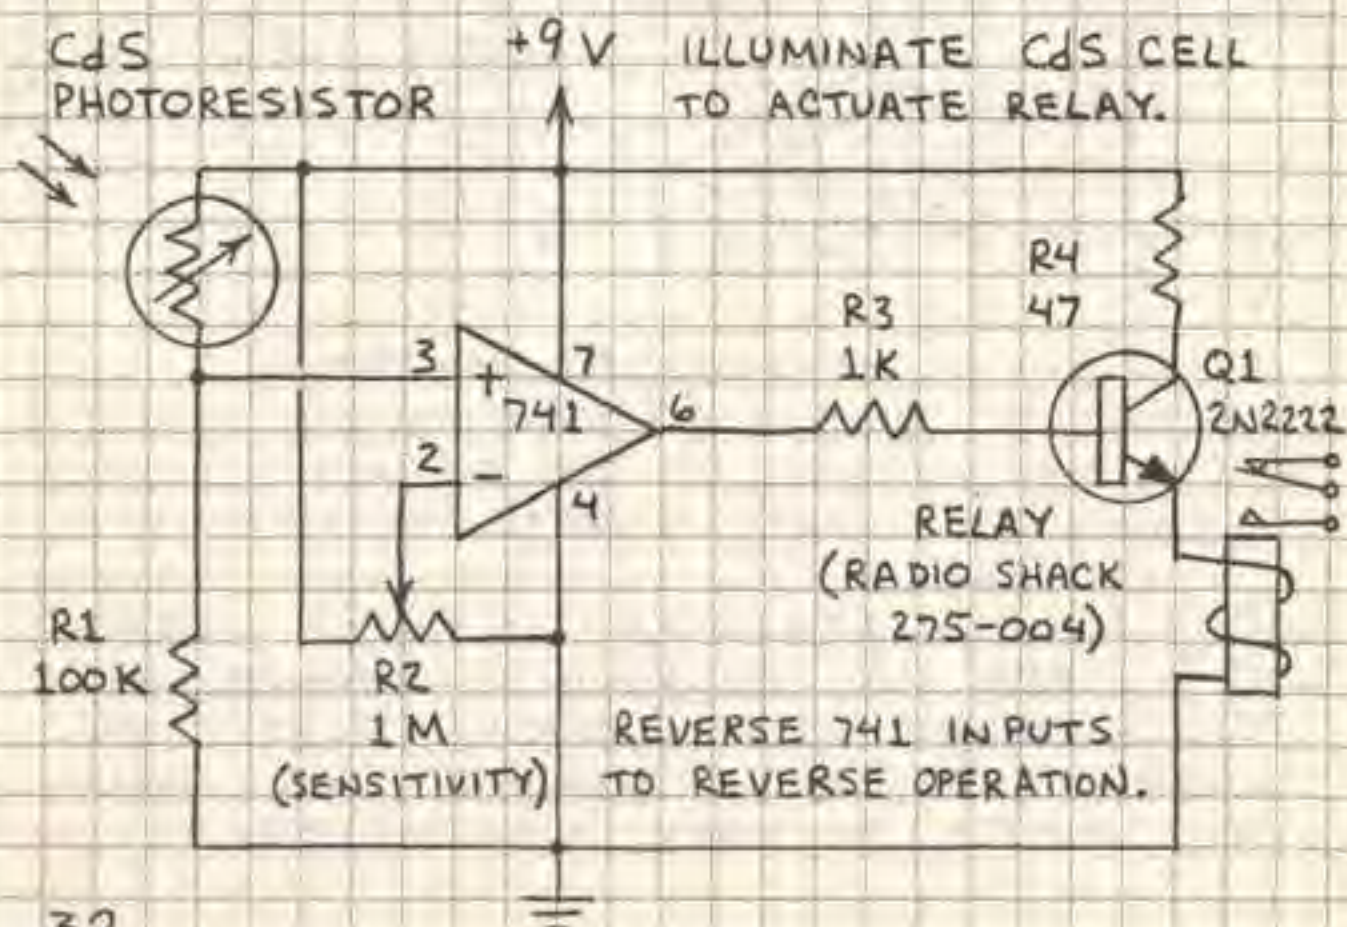 CdS
PHOTORESISTOR
+9V
ILLUMINATE CdS CELL
TO ACTUATE RELAY.
R4
47
R3
1K
Q1
2N2222
3
+
7
741
6
2
-
4
RELAY
(RADIO SHACK
275-004)
R1
100K
R2
1M
(SENSITIVITY)
REVERSE 741 INPUTS
TO REVERSE OPERATION.